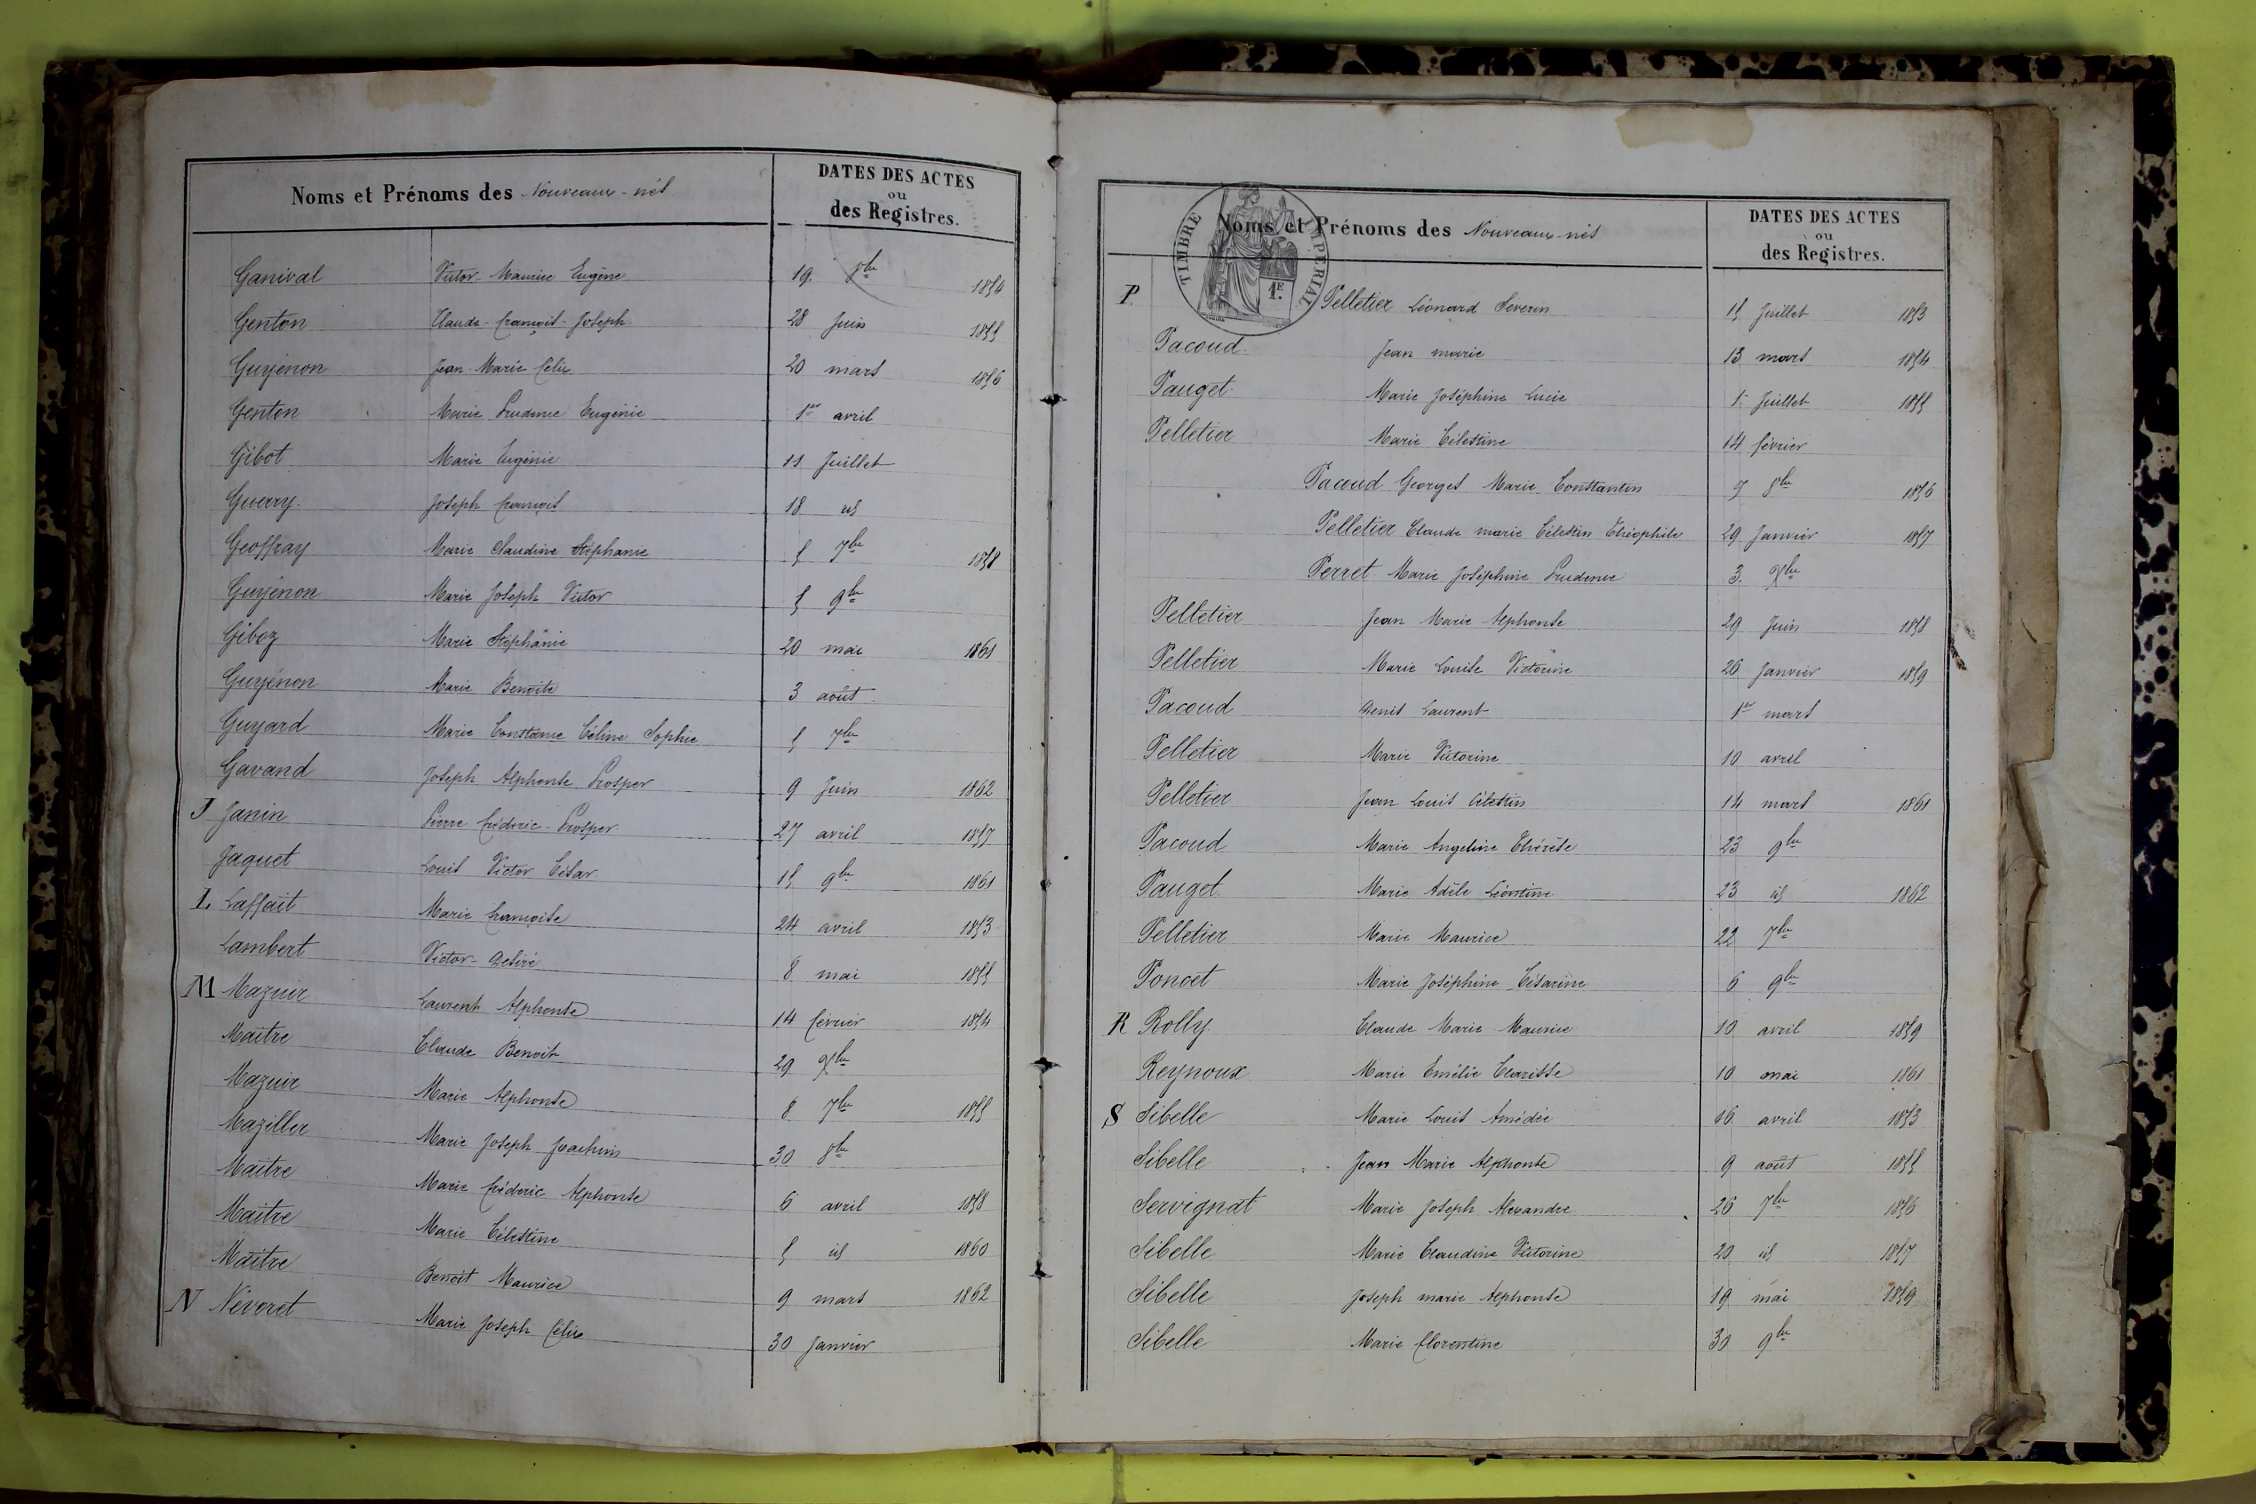 Noms et Prénoms des Nouveaux-nés
DATES DES ACTES
ou
des Registres.
Ganival Victor-Maurice Eugène 19. 8bre 1854
Genton Claude-François-Joseph 28 Juin 1855
Guyénon Jean-Marie Félix 20 mars 1856
Genton Marie Prudence Eugénie 1er avril
Gibot Marie Eugénie 11 Juillet
Guerry Joseph François 18 id
Geoffray Marie Claudine Stéphanie 5 7bre 1858
Guyénon Marie Joseph Victor 5 9bre
Giboz Marie Stéphanie 20 mai 1861
Guyénon Marie Benoite 3 août
Guyard Marie Constance Céline Sophie 5 7bre
Gavand Joseph Alphonse Prosper 9 Juin 1862
J Janin Pierre Frédéric-Prosper 27 avril 1857
Jaquet Louis Victor César 15 9bre 1861
L Laffait Marie Françoise 24 avril 1853
Lambert Victor-Désiré 8 mai 1855
M Mazuir Laurent Alphonse 14 février 1854
Maitre Claude Benoit 29 Xbre
Mazuir Marie Alphonse 8 7bre 1855
Maziller Marie Joseph Joachim 30 8bre
Maitre Marie Frédéric Alphonse 6 avril 1858
Maitre Marie Célestine 5 id 1860
Maitre Benoit Maurice 9 mars 1862
N Néveret Marie Joseph Félix 30 Janvier
Noms et Prénoms des Nouveaux-nés
DATES DES ACTES
ou
des Registres.
TIMBRE IMPERIAL
1E.
P Pelletier Léonard Severin 15 Juillet 1853
Pacoud Jean marie 13 mars 1854
Pauget Marie Joséphine Lucie 1. Juillet 1855
Pelletier Marie Célestine 14 février
Pacoud Georges Marie Constantin 7 8bre 1856
Pelletier Claude marie Célestin Théophile 29 Janvier 1857
Perret Marie Joséphine Prudence 3. Xbre
Pelletier Jean Marie Alphonse 29 Juin 1858
Pelletier Marie Louise Victorine 26 Janvier 1859
Pacoud Denis Laurent 1er mars
Pelletier Marie Victorine 10 avril
Pelletier Jean Louis Célestin 14 mars 1861
Pacoud Marie Angeline Thérèse 23 9bre
Pauget Marie Adèle Léontine 23 id 1862
Pelletier Marie Maurice 22 7bre
Poncet Marie Joséphine Césarine 6 9bre
R Rolly Claude Marie Maurice 10 avril 1859
Reynoux Marie Emélie Clarisse 10 mai 1861
S Sibelle Marie Louis Amédée 16 avril 1853
Sibelle Jean Marie Alphonse 9 août 1855
Servignat Marie Joseph Alexandre 26 7bre 1856
Sibelle Marie Claudine Victorine 20 id 1857
Sibelle Joseph marie Alphonse 19 mai 1859
Sibelle Marie Florentine 30 9bre